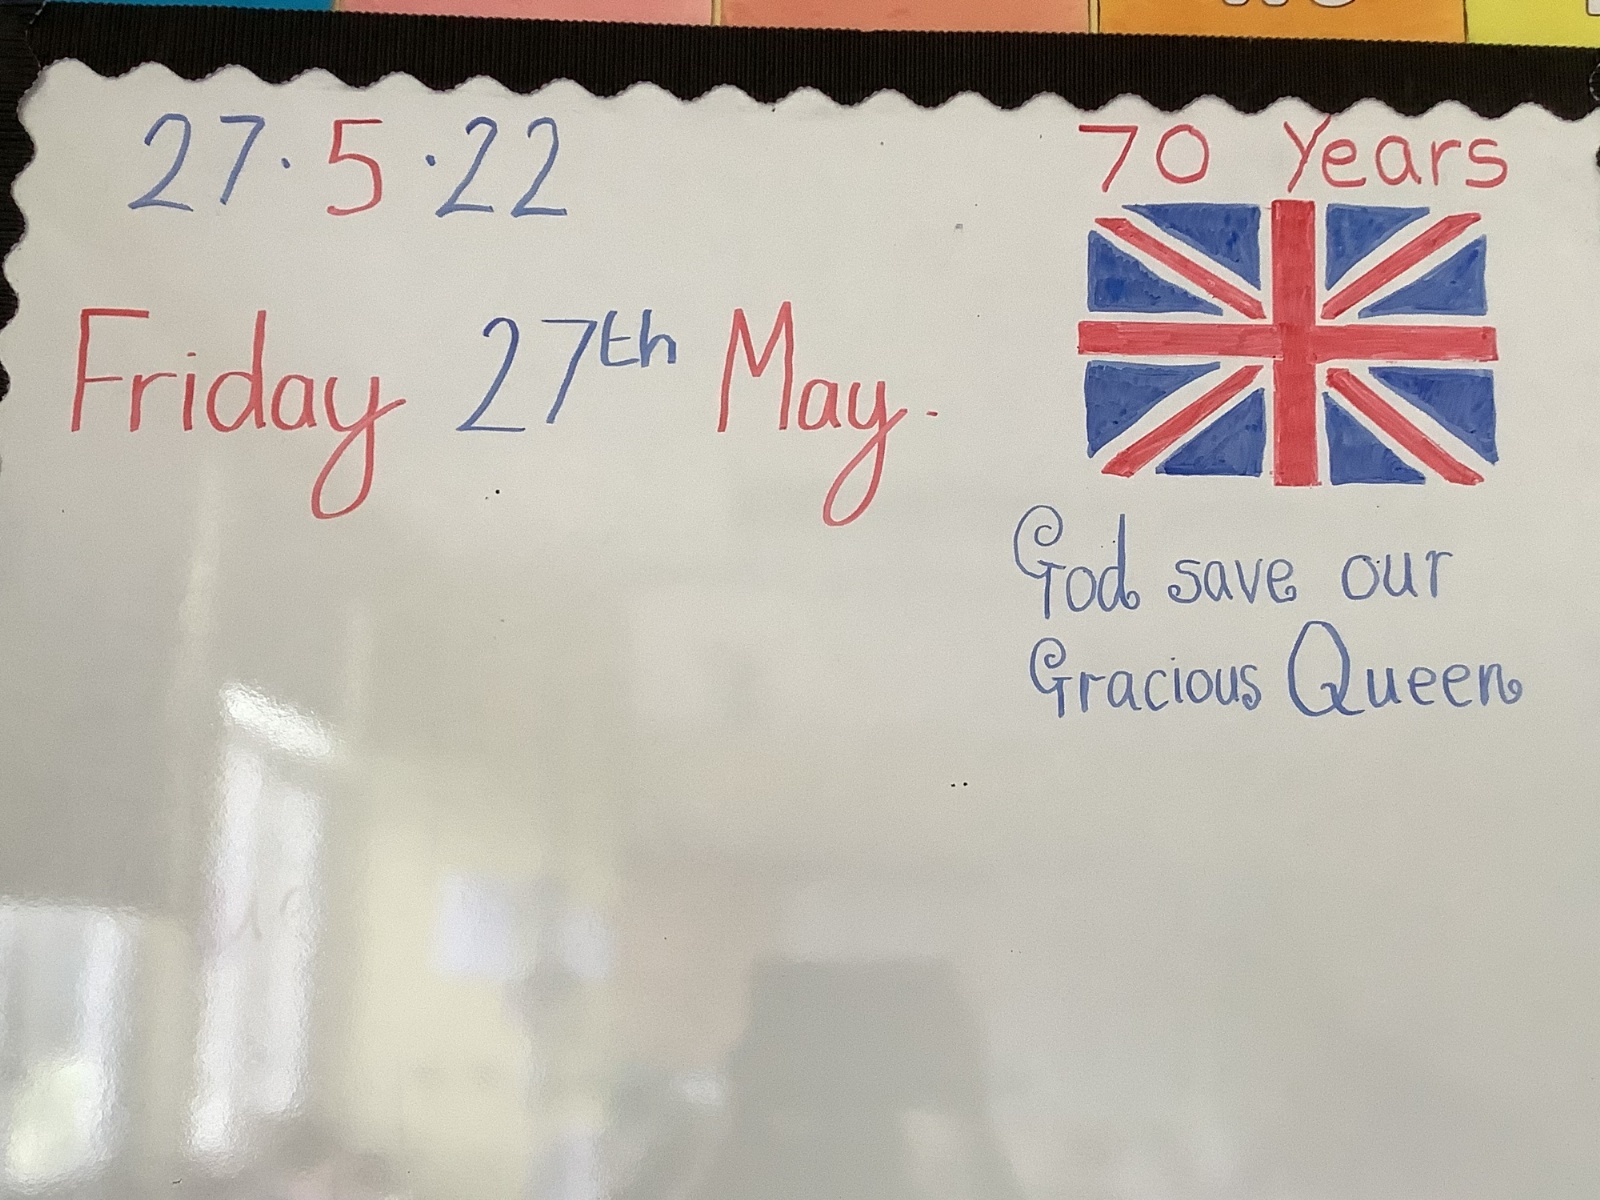 27.5.22
Friday 27th May.
70 Years
God save our
Gracious Queen